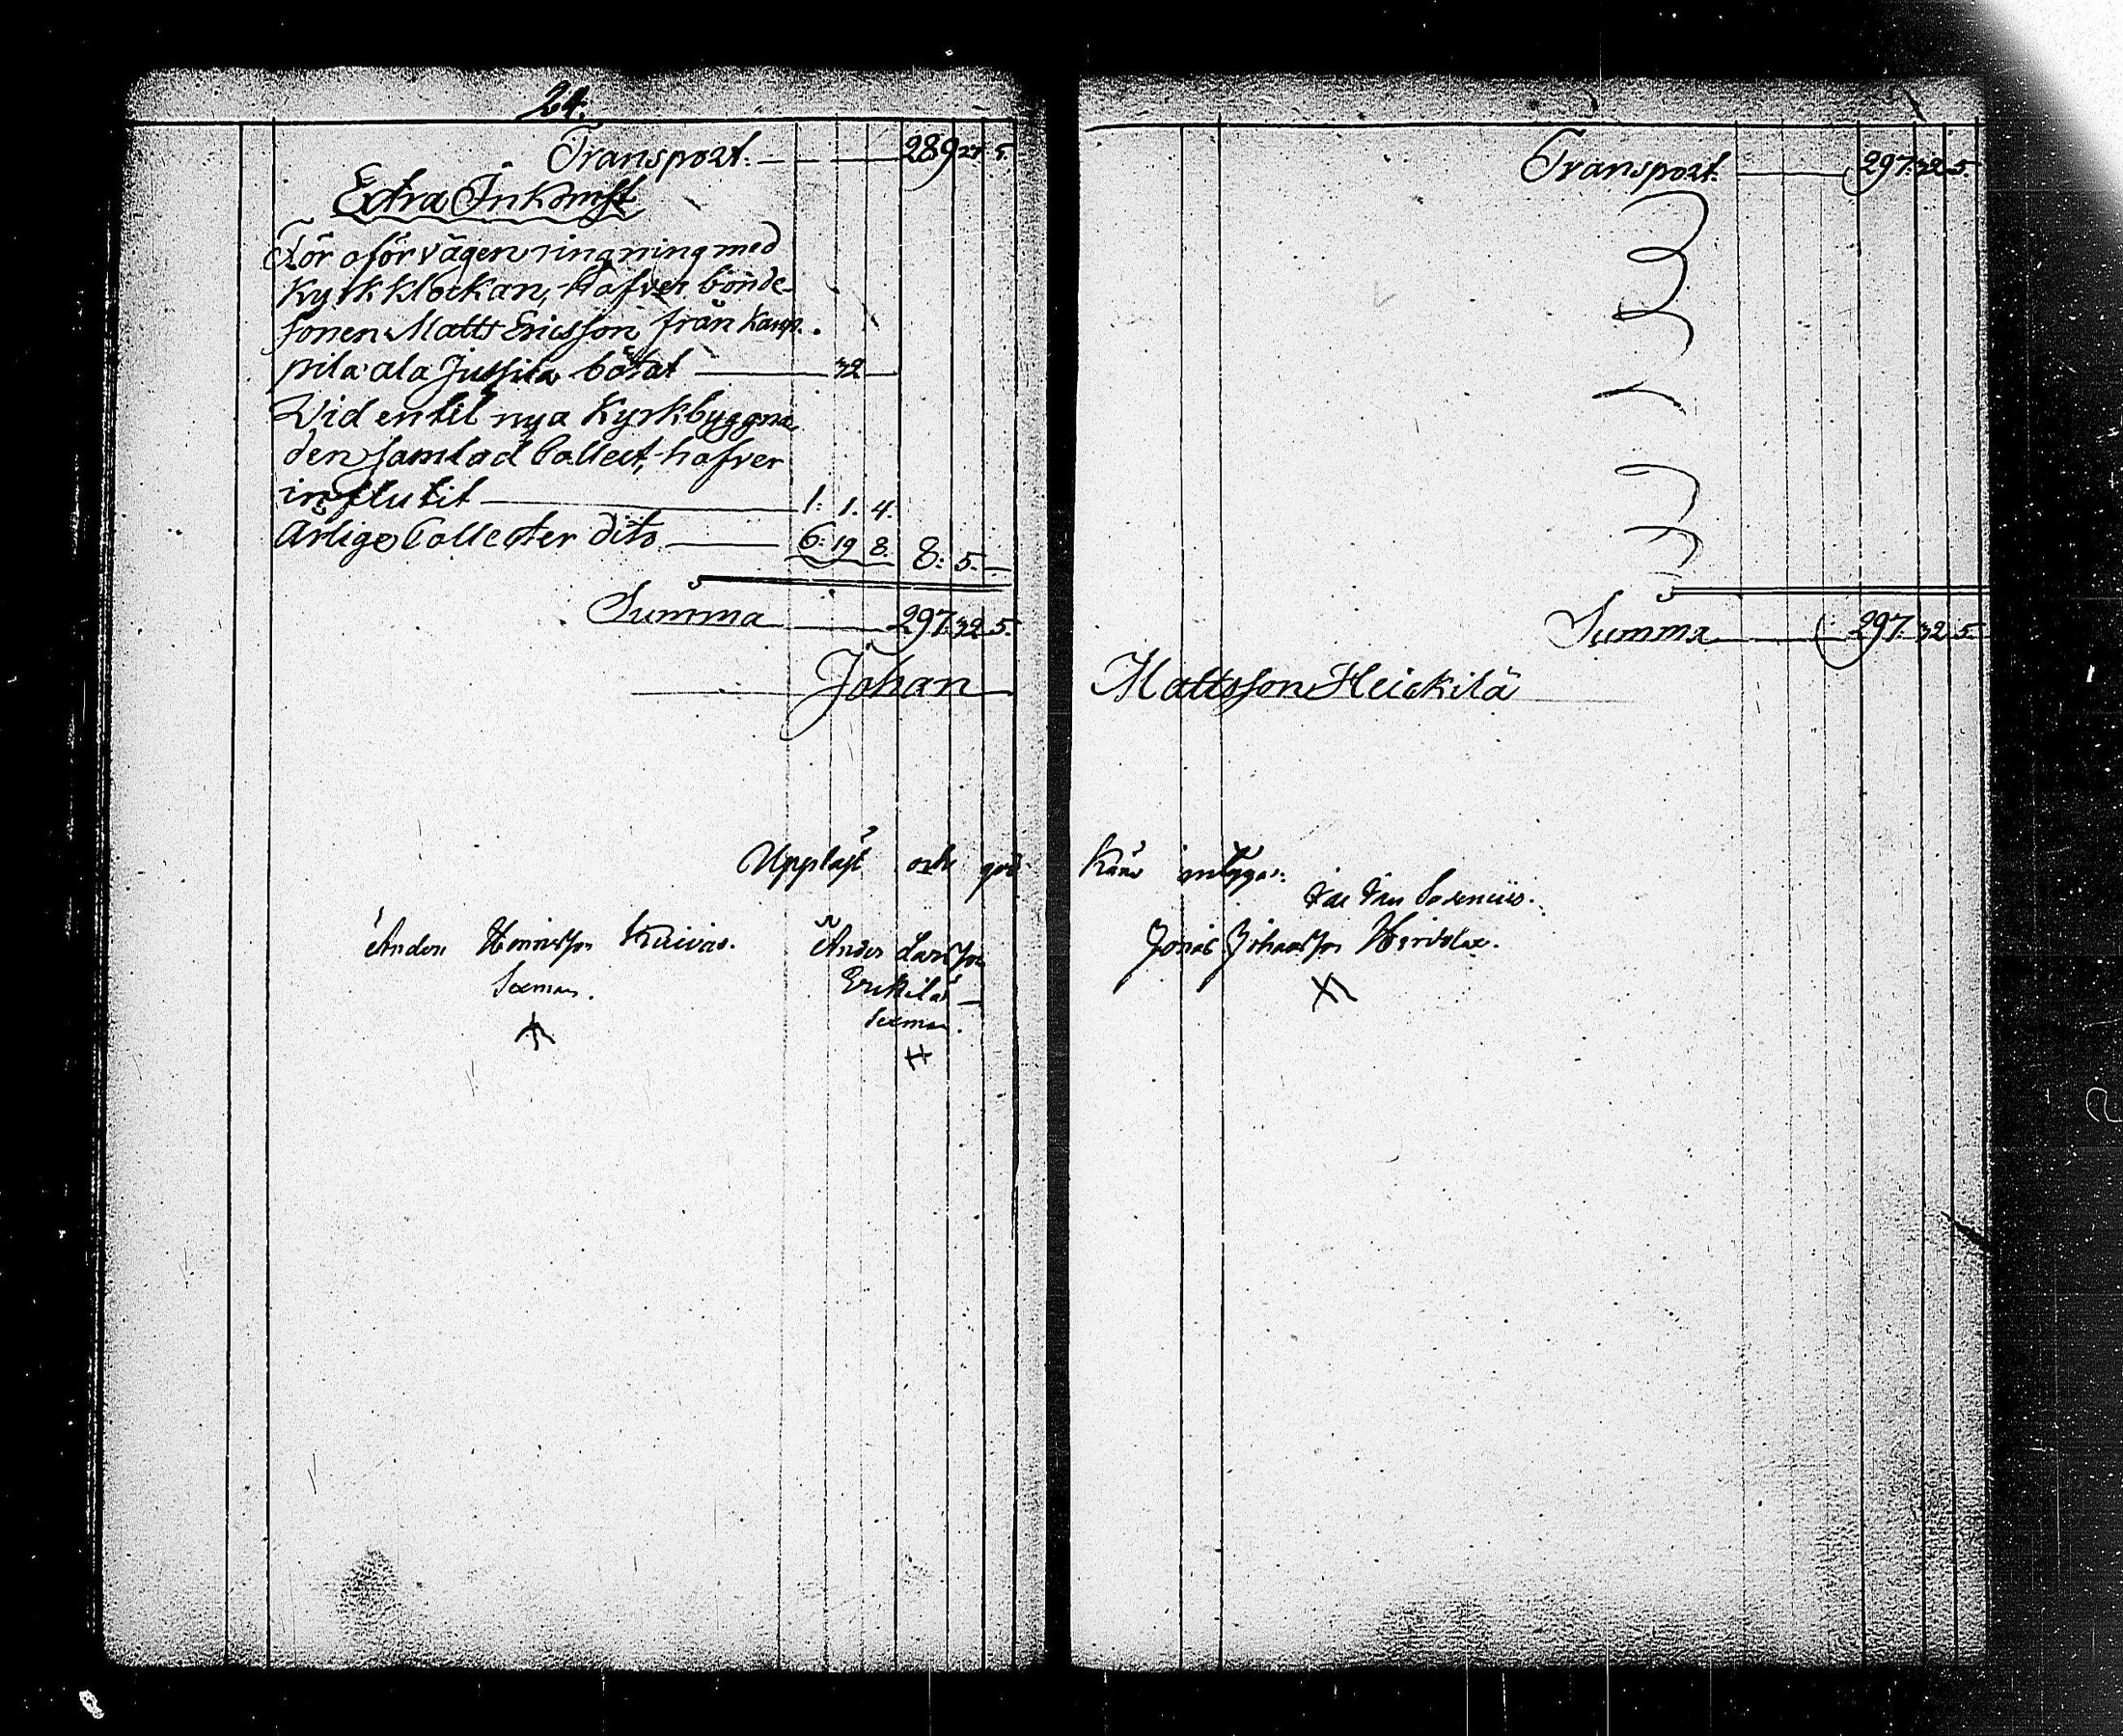 24.
Transport. 289 27 5.
Extra Inkomst
För oförvägen ringning med
Kyrkklockan, hafver bonde-
sonen Matts Ericsson från Kaup-
pila ala Jussila bötat 32
Wid en til nya Kyrkbyggna
den samlad Collect, hafver
influtit 1. 1. 4.
Årlige Collecter dito 6. 19 8. 8: 5.
Summa 297. 32 5.
Johan
Uppläst och god
Anders Kuivas. Anders Larsson
Sexman. Erkilä
Sexman.
Transport. 297. 32 5.
Summa 297. 32 5.
Mattsson Heickilä
känd intygar.
Jonas Johansson